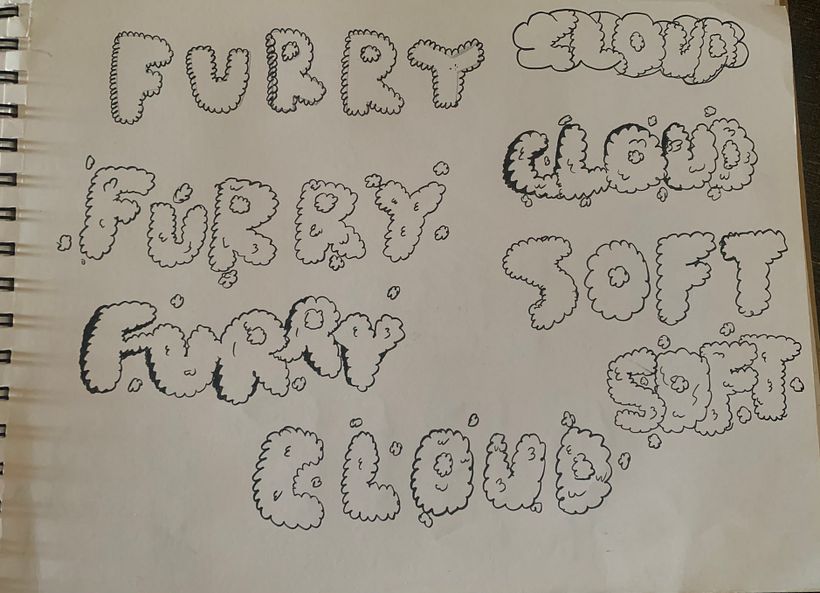 FURRT
CLOUD
CLOUD
FURRY
SOFT
FURRY
SOFT
CLOUD